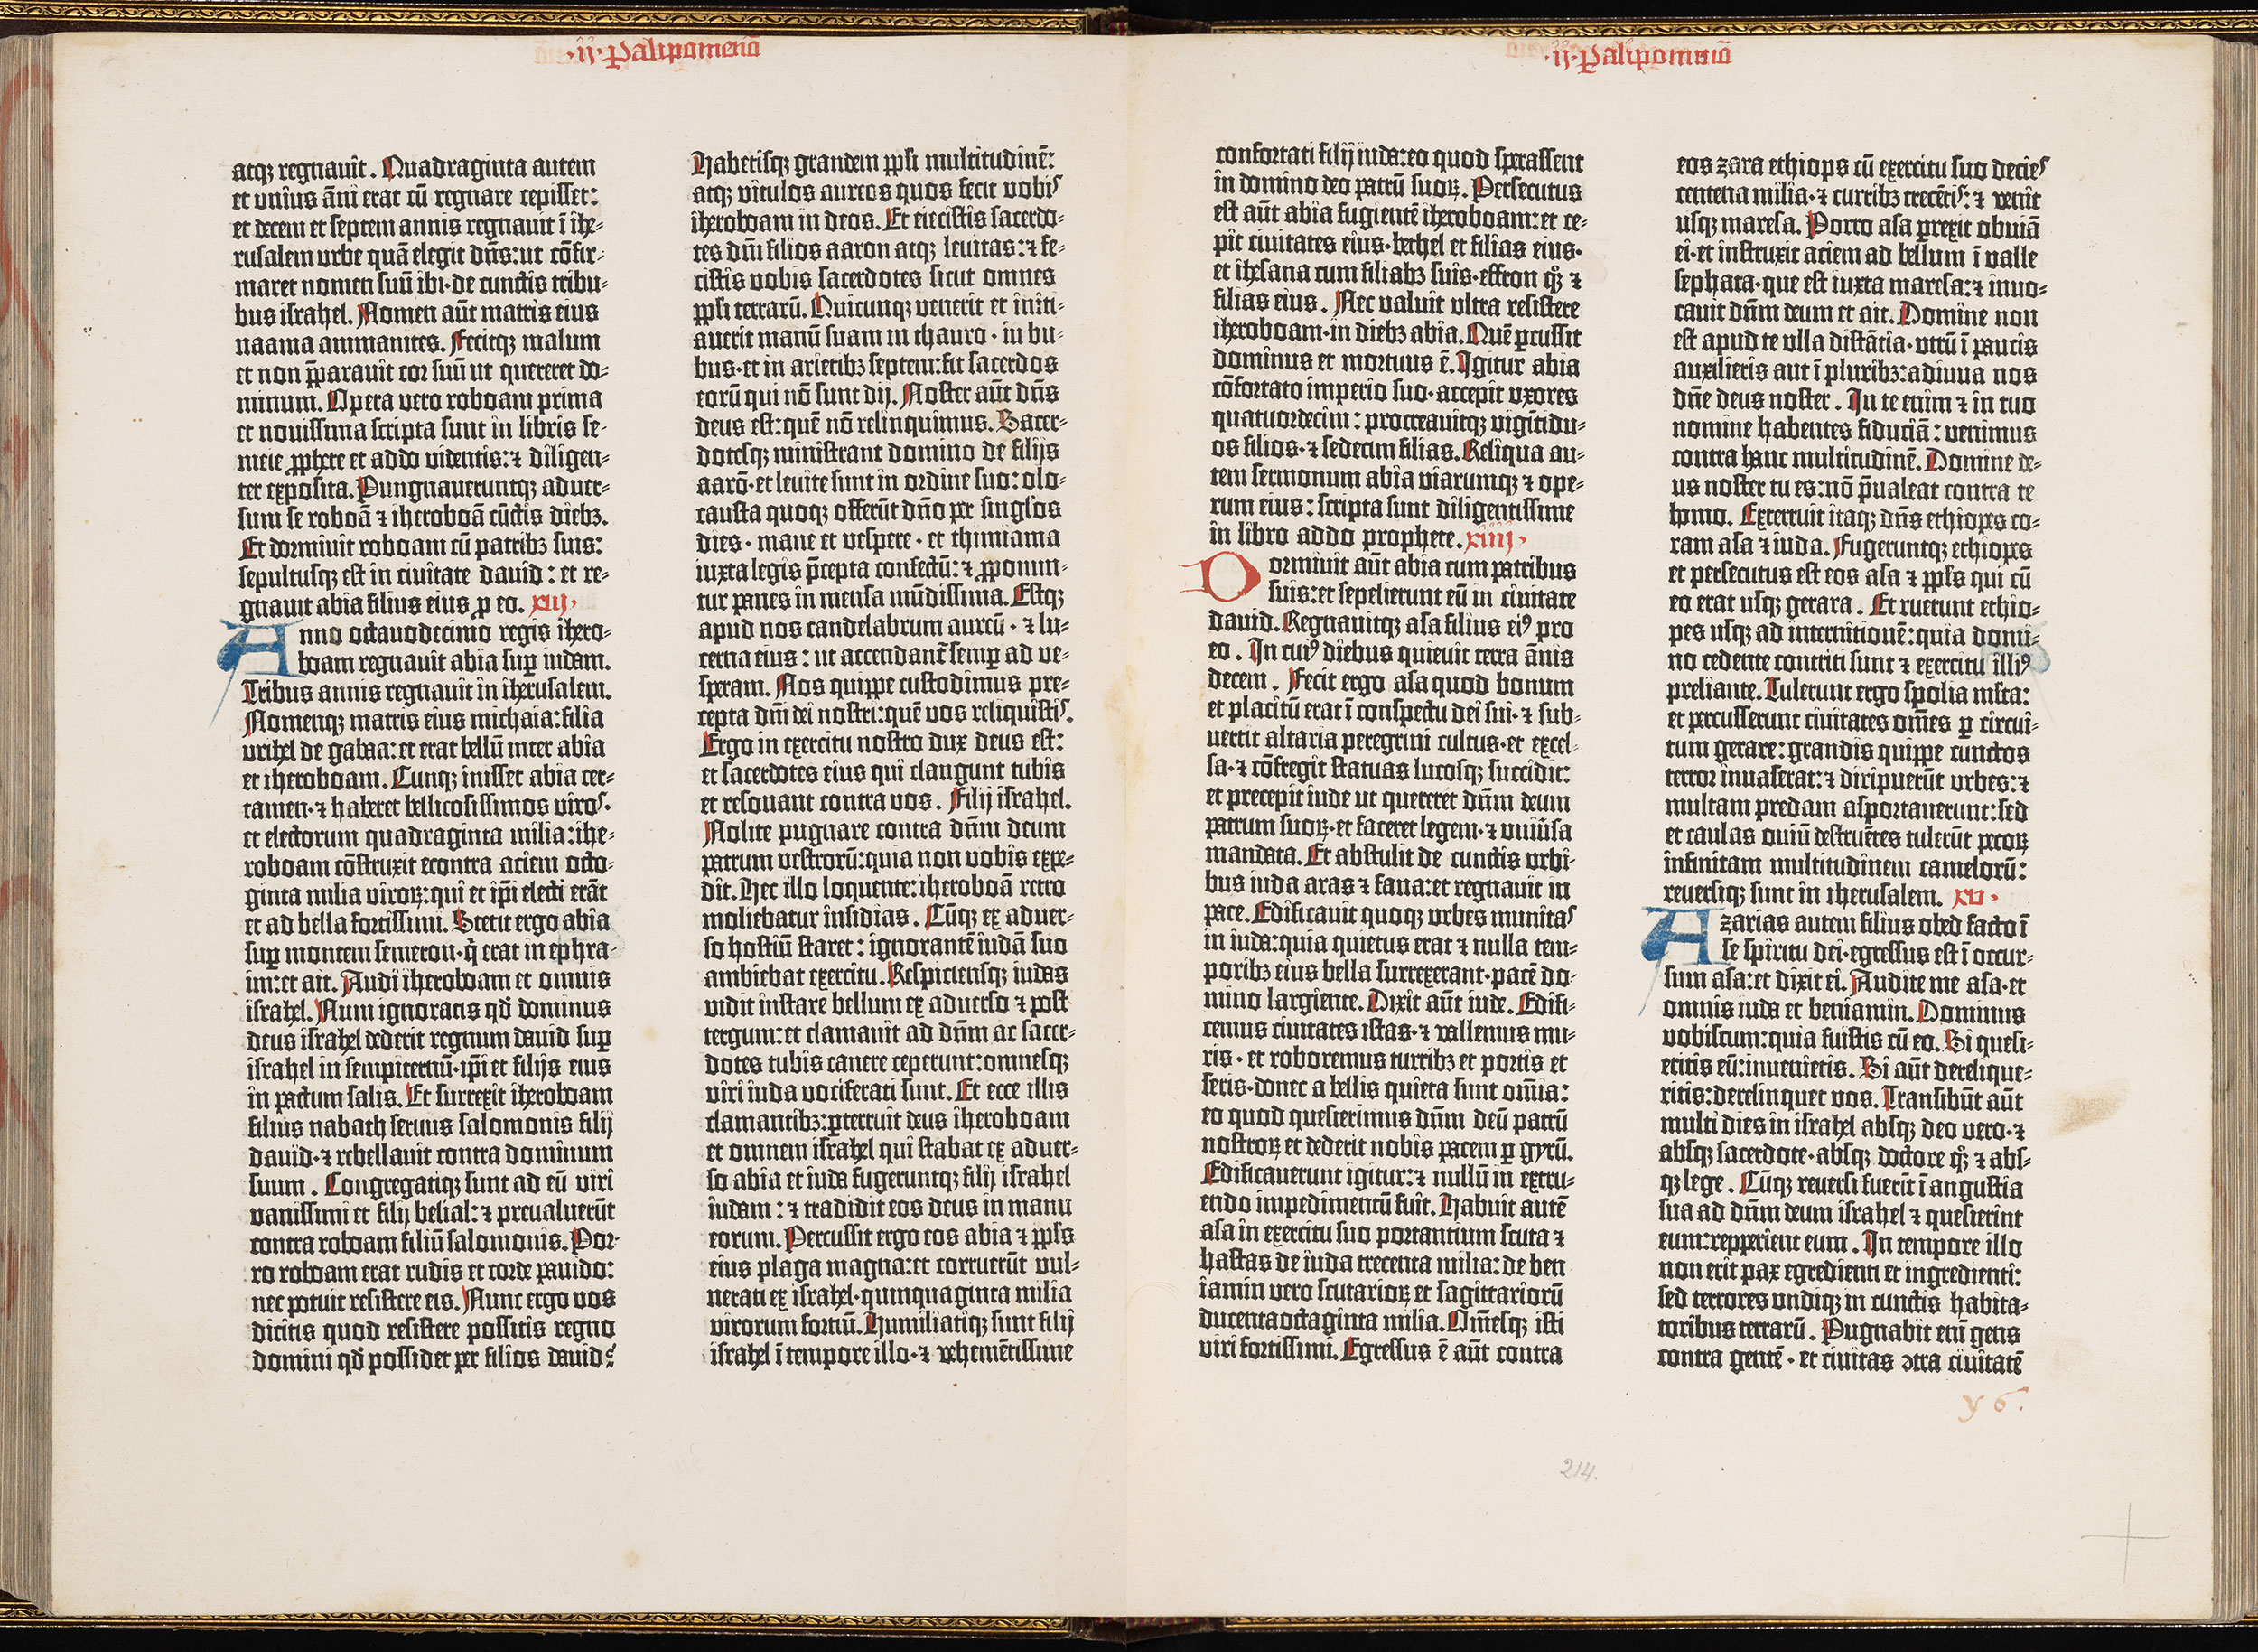 ·ij· Paralipomenō
atqꝫ regnauit. Quadraginta autem
et unius āni erat cū regnare cepisset:
et decem et septem annis regnauit ī ihe-
rusalem urbe quā elegit dñs: ut cōfir-
maret nomen suū ibi· de cunctis tribu-
bus israhel. Nomen aūt matris eius
naama ammanites. Fecitqꝫ malum
et non p̄parauit cor suū ut quereret do-
minum. Opera vero roboam prima
et nouissima scripta sunt in libris se-
meie ꝓphete et addo videntis: ⁊ diligen-
ter exposita. Pungnaueruntqꝫ aduer-
sum se roboā ⁊ iheroboā cūctis diebꝫ.
Et dormiuit roboam cū patribꝫ suis:
sepultusqꝫ est in ciuitate dauid: et re-
gnauit abia filius eius ꝓ eo. xiij·
Anno octauodecimo regis ihero-
boam regnauit abia suꝑ iudam.
Tribus annis regnauit in iherusalem.
Nomenqꝫ matris eius michaia: filia
urihel de gabaa: et erat bellū inter abia
et iheroboam. Cunqꝫ inisset abia cer-
tamen· ⁊ haberet bellicosissimos viros·
et electorum quadraginta milia: ihe-
roboam cōstruxit econtra aciem octo-
ginta milia viroꝝ: qui et ip̄i electi erāt
et ad bella fortissimi. Stetit ergo abia
suꝑ montem semeron· q̇ erat in ephra-
im: et ait. Audi iheroboam et omnis
israhel. Num ignoratis qd̄ dominus
deus israhel dederit regnum dauid suꝑ
israhel in sempiternū· ip̄i et filijs eius
in pactum salis. Et surrexit iheroboam
filius nabath seruus salomonis filij
dauid· ⁊ rebellauit contra dominum
suum. Congregatiqꝫ sunt ad eū viri
vanissimi et filij belial: ⁊ preualuerūt
contra roboam filiū salomonis. Por-
ro roboam erat rudis et corde pauido:
nec potuit resistere eis. Nunc ergo vos
dicitis quod resistere possitis regno
domini qd̄ possidet per filios dauid:
Habetisqꝫ grandem ppli multitudinē:
atqꝫ vitulos aureos quos fecit vobis
iheroboam in deos. Et eiecistis sacerdo-
tes dñi filios aaron atqꝫ leuitas: ⁊ fe-
cistis vobis sacerdotes sicut omnes
ppli terrarū. Quicunqꝫ venerit et initi-
auerit manū suam in thauro· in bu-
bus· et in arietibꝫ septem: fit sacerdos
eorū qui nō sunt dij. Noster aūt dñs
deus est: quē nō relinquimus. Sacer-
dotesqꝫ ministrant domino de filijs
aarō· et leuite sunt in ordine suo: olo-
causta quoqꝫ offerūt dño per singlos
dies· mane et vespere· et thimiama
iuxta legis p̄cepta confectū: ⁊ ꝓponun-
tur panes in mensa mūdissima. Estqꝫ
apud nos candelabrum aureū· ⁊ lu-
cerna eius: ut accendant̄ semꝑ ad ve-
speram. Nos quippe custodimus pre-
cepta dñi dei nostri: quē vos reliquistis.
Ergo in exercitu nostro dux deus est:
et sacerdotes eius qui clangunt tubis
et resonant contra vos. Filij israhel.
Nolite pugnare contra dñm deum
patrum vestrorū: quia non vobis expe-
dit. Hec illo loquente: iheroboā retro
moliebatur insidias. Cūqꝫ ex aduer-
so hostiū staret: ignorantē iudā suo
ambiebat exercitu. Respiciensqꝫ iudas
vidit instare bellum ex aduerso ⁊ post
tergum: et clamauit ad dñm ac sacer-
dotes tubis canere ceperunt: omnesqꝫ
viri iuda vociferati sunt. Et ecce illis
clamantibꝫ: ꝑterruit deus iheroboam
et omnem israhel qui stabat ex aduer-
so abia et iuda fugeruntqꝫ filij israhel
iudam: ⁊ tradidit eos deus in manu
eorum. Percussit ergo eos abia ⁊ ppls
eius plaga magna: et corruerūt vul-
nerati ex israhel· quinquaginta milia
virorum fortiū. Humiliatiqꝫ sunt filij
israhel ī tempore illo· ⁊ vehemētissime
·ij· Paralipomenō
confortati filij iuda: eo quod sperassent
in domino deo patrū suoꝝ. Persecutus
est aūt abia fugientē iheroboam: et ce-
pit ciuitates eius· bethel et filias eius·
et ihesana cum filiabꝫ suis· effron qꝫ ⁊
filias eius. Nec valuit ultra resistere
iheroboam· in diebꝫ abia. Quē ꝑcussit
dominus et mortuus ē. Igitur abia
cōfortato imperio suo· accepit uxores
quatuordecim: procreauitqꝫ vigītidu-
os filios· ⁊ sedecim filias. Reliqua au-
tem sermonum abia viarumqꝫ ⁊ ope-
rum eius: scripta sunt diligentissime
in libro addo prophete. xiiij·
Dormiuit aūt abia cum patribus
suis: et sepelierunt eū in ciuitate
dauid. Regnauitqꝫ asa filius eiꝰ pro
eo. In cuiꝰ diebus quieuit terra ānis
decem. Fecit ergo asa quod bonum
et placitū erat ī conspectu dei sui· ⁊ sub-
uertit altaria peregrini cultus· et excel-
sa· ⁊ cōfregit statuas lucosqꝫ succidit:
et precepit iude ut quereret dñm deum
patrum suoꝝ· et faceret legem· ⁊ uniūsa
mandata. Et abstulit de cunctis urbi-
bus iuda aras ⁊ fana: et regnauit in
pace. Edificauit quoqꝫ urbes munitas
in iuda: quia quietus erat ⁊ nulla tem-
poribꝫ eius bella surrexerant· pacē do-
mino largiente. Dixit aūt iude. Edifi-
cemus ciuitates istas· ⁊ vallemus mu-
ris· et roboremus turribꝫ et portis et
seris· donec a bellis quieta sunt om̄ia:
eo quod quesierimus dñm deū patrū
nostroꝝ et dederit nobis pacem ꝑ gyrū.
Edificauerunt igitur: ⁊ nullū in extru-
endo impedimentū fuit. Habuit autē
asa in exercitu suo portantium scuta ⁊
hastas de iuda trecenta milia: de ben
iamin vero scutarioꝝ et sagittariorū
ducenta octaginta milia. Om̄esqꝫ isti
viri fortissimi. Egressus ē aūt contra
eos zara ethiops cū exercitu suo decies
centena milia· ⁊ curribꝫ trecētis: ⁊ venit
usqꝫ maresa. Porro asa ꝑrexit obuiā
ei· et instruxit aciem ad bellum ī valle
sephata· que est iuxta maresa: ⁊ inuo-
cauit dñm deum et ait. Domine non
est apud te ulla distātia· utrū ī paucis
auxilieris aut ī pluribꝫ: adiuua nos
dñe deus noster. In te enim ⁊ in tuo
nomine habentes fiduciā: venimus
contra hanc multitudinē. Domine de-
us noster tu es: nō p̄ualeat contra te
homo. Exterruit itaqꝫ dñs ethiopes co-
ram asa ⁊ iuda. Fugeruntqꝫ ethiopes
et persecutus est eos asa ⁊ ppls qui cū
eo erat usqꝫ gerara. Et ruerunt ethio-
pes usqꝫ ad internitionē: quia domi-
no cedente contriti sunt ⁊ exercitu illiꝰ
preliante. Tulerunt ergo spolia ml̄ta:
et percusserunt ciuitates om̄es ꝑ circui-
tum gerare: grandis quippe cunctos
terror inuaserat: ⁊ diripuerūt urbes: ⁊
multam predam asportauerunt: sed
et caulas ouiū destruētes tulerūt pecoꝝ
infinitam multitudinem camelorū:
reuersiqꝫ sunt in iherusalem. xv·
Azarias autem filius obed facto ī
se spiritu dei· egressus est ī occur-
sum asa: et dixit ei. Audite me asa· et
omnis iuda et beniamin. Dominus
vobiscum: quia fuistis cū eo. Si quesi-
eritis eū: inuenietis. Si aūt derelique-
ritis: derelinquet vos. Transibūt aūt
multi dies in israhel absqꝫ deo vero· ⁊
absqꝫ sacerdote· absqꝫ doctore qꝫ ⁊ abs-
qꝫ lege. Cūqꝫ reuersi fuerīt ī angustia
sua ad dñm deum israhel ⁊ quesierint
eum: repperient eum. In tempore illo
non erit pax egredienti et ingredienti:
sed terrores undiqꝫ in cunctis habita-
toribus terrarū. Pugnabit eni gens
contra gentē· et ciuitas ꝯtra ciuitatē
y 6.
214.